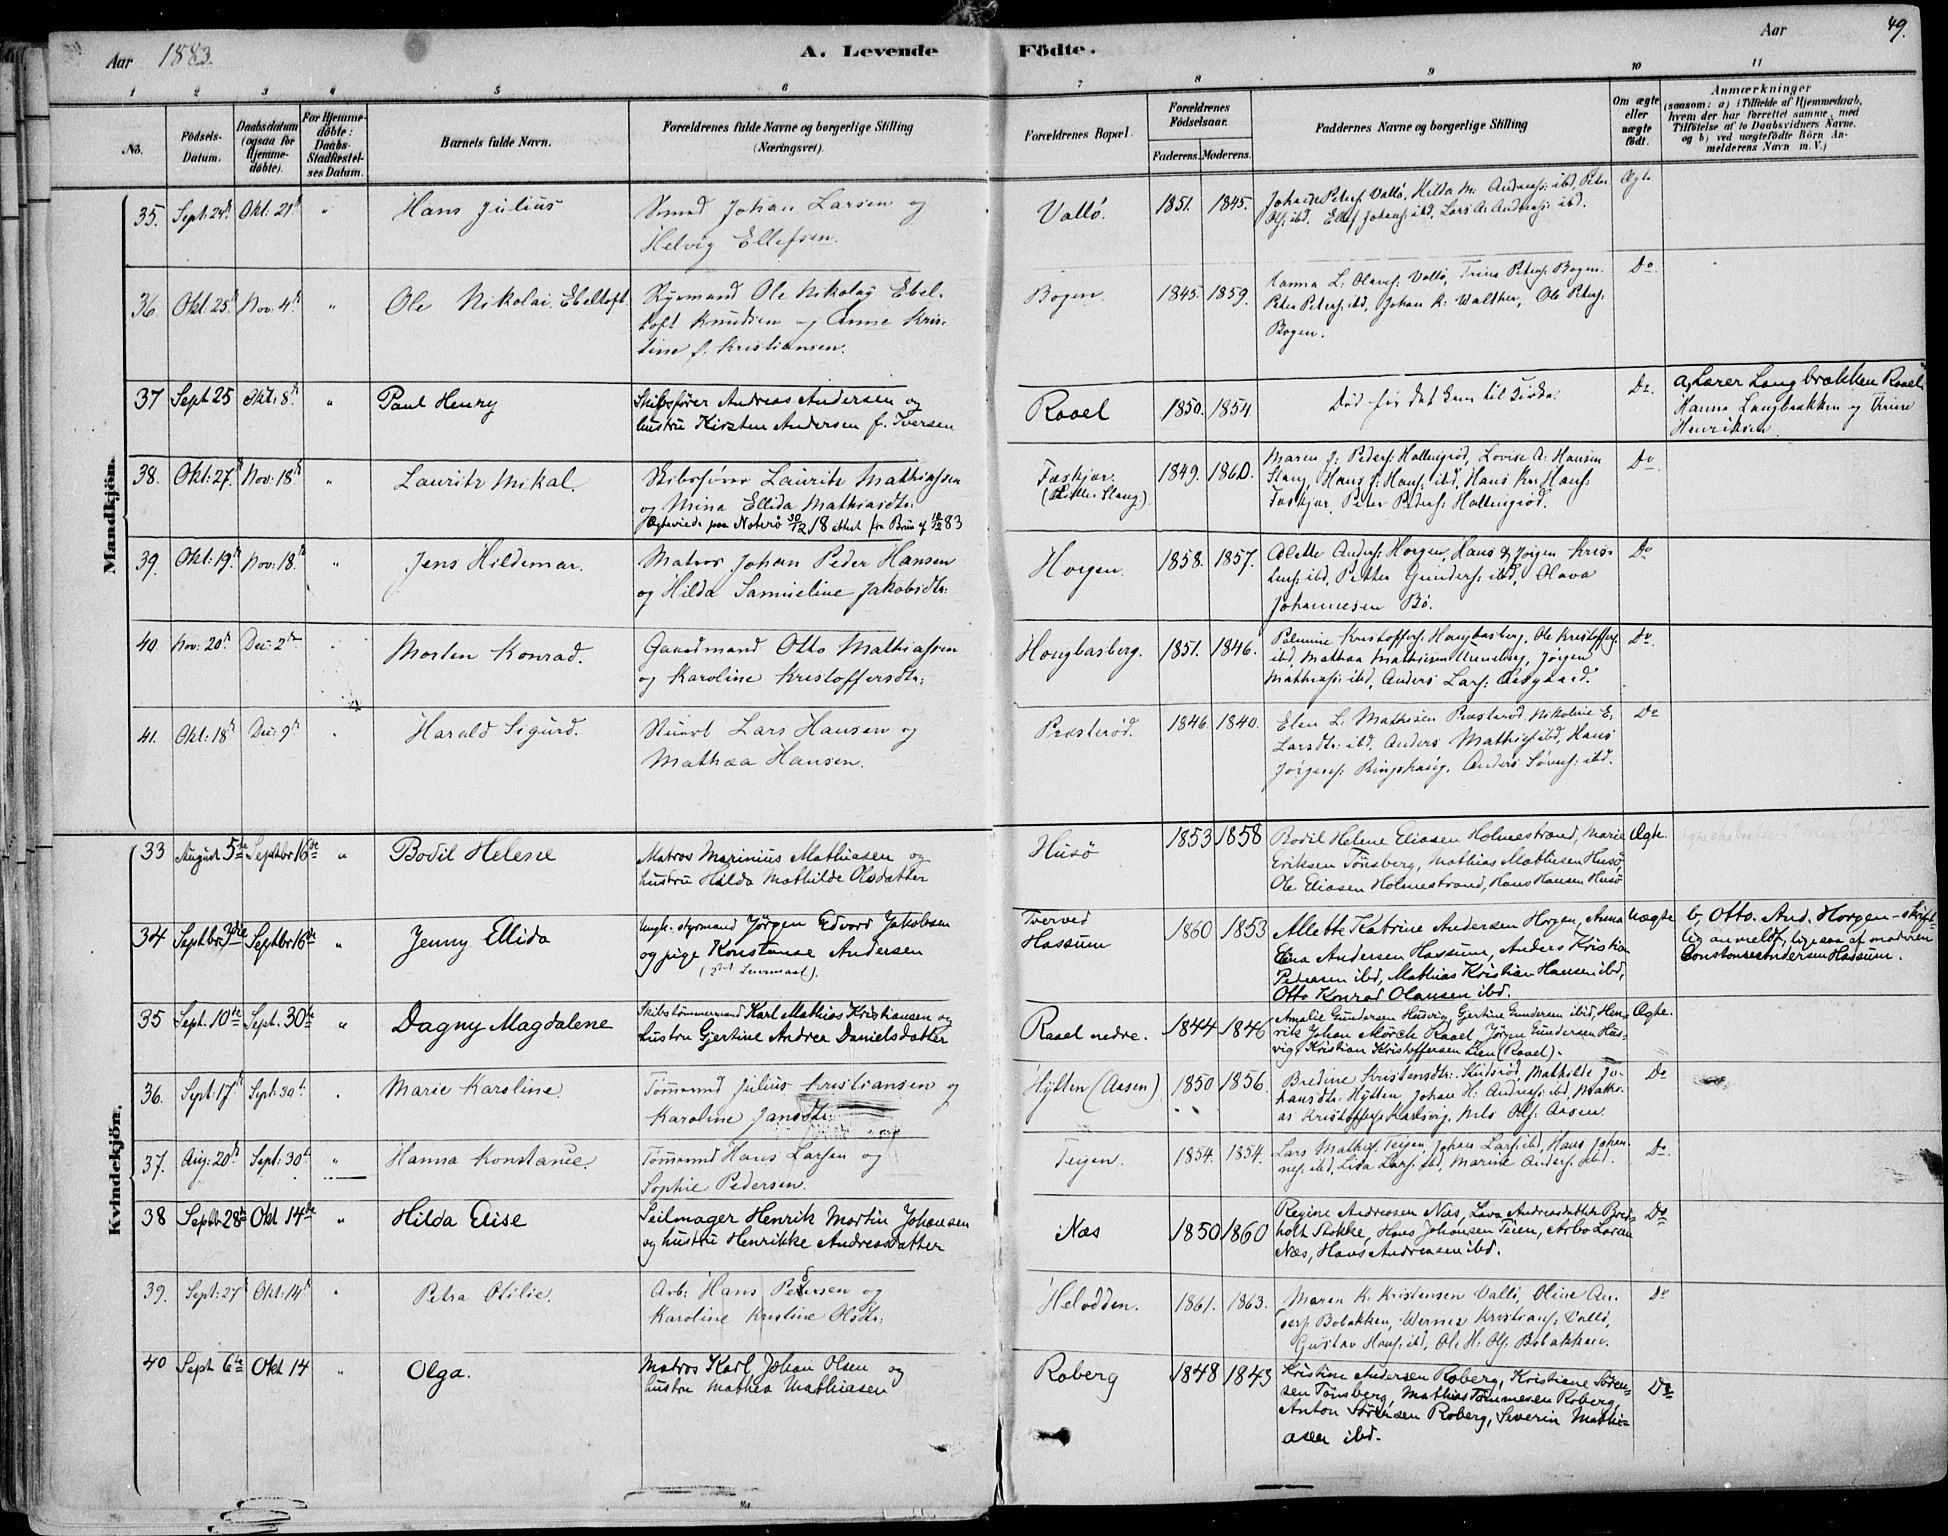 Aar 1883. A. Levende Födte. Aar 49.
1 2 3 4 5 6 7 8 9 10 11
No.
Födsels-Datum.
Daabsdatum (ogsaa for Hjemme-döbte).
For Hjemme-döbte: Daabs-Stadfæstel-ses Datum.
Barnets fulde Navn.
Forældrenes fulde Navne og borgerlige Stilling (Næringsvei).
Forældrenes Bopæl.
Forældrenes Födselsaar.
Faderens. Moderens.
Faddernes Navne og borgerlige Stilling
Om ægte eller uægte födt.
Anmærkninger
(saasom: a) i Tilfælde af Hjemmedaab, hvem der har forrettet samme, med Tilföielse af to Daabsvidners Navne, og b) ved uægtefödte Börn Anmelderens Navn m. V.)
Mandkjön.
35. Sept: 24d Okt: 21d " Hans Julius
Smed Johan Larsen og
Helvig Ellefsen.
Vallö. 1851. 1845.
Johan Peters: Vallö, Hilda M. Andreas: ibd, Peter
Ols: ibd. Ellef Johans: ibd, Lars A. Andreas: ibd.
Ægte
36 Okt: 25d Nov: 4d " Ole Nikolai Ebeltoft
Styrmand Ole Nikolay Ebel-
toft Knudsen og Anne Kris-
tine f. Kristiansen.
Bogen. 1845. 1859.
Hanna L. Olavs: Vallö, Trina Peters: Bogen.
Peter Peters: ibd, Johan K. Walther, Ole Peters:
Bogen.
Do
37 Sept 25 Okt: 8d " Paul Henry
Skibsfører Andreas Andersen og
hustru Kirsten Andersen f. Iversen
Raael 1850. 1854
Död før det kom til Kirke.
Do
a, Lærer Langbrækken Raael
Hanna Langbrækken og Trine
Henriksen.
38. Okt: 27d Nov: 18d " Lauritz Mikal.
Skibsfører Lauritz Mathiassen
og Mina Ellida Mathiasdtr:
Ægteviede paa Noterö 30/12 18 attest fra 18/12 83
1849. 1860.
Maren J. Peders: Hallingröd, Lovise A. Hansen
Stang, Hans J. Hans: ibd, Hans Kr. Hans:
Peter Peders: Hallingröd.
Do
39. Okt: 19d Nov: 18. " Jens Hildemar.
Matros Johan Peder Hansen
og Hilda Samueline Jakobsdtr:
Horgen. 1858. 1857.
Alette Anders: Horgen, Hans & Jörgen Kris-
tens: ibd, Petter Gunders: ibd, Olava
Johannesen Bö.
Do
40. Nov: 20d Dec: 2d Morten Konrad.
Gaardmand Otto Mathiassen
og Karoline Kristoffersdtr:
Hougbasberg. 1851. 1846.
Palmine Kristoffers: Hougbasberg, Ole Kristoffers:
ibd, Mathea Mathiesen Unneberg, Jörgen
Mathias: ibd, Anders Lars: Aasgaard.
Do
41. Okt: 18d Dec: 9d Harald Sigurd.
Stuert Lars Hansen og
Mathæa Hansen.
Præsteröd. 1846 1840.
Elen L. Mathisen Præsteröd, Nikoline E.
Larsdtr: ibd, Anders Mathis: ibd, Hans
Jörges: Ringshaug, Anders Sörens: ibd.
Do
Kvindekjön.
33 August 5te Septbr 16de " Bodil Helene
Matros Marinius Mathiasen og
hustru Hilda Mathilde Olsdatter
Husö 1853 1858
Bodil Helene Eliasen Holmestrand, Marie
Eriksen Tönsberg, Mathias Mathiesen Husö,
Ole Eliasen Holmestrand, Hans Hansen Husö
Ægte.
34 Septbr Septbr 16de " Jenny Ellida
Ungk. styrmand Jörgen Edvard Jakobsen
og pige Konstanse Andersen
(2det Leiermaal).
Tverved
Hassum 1860 1853
Allette Katrine Andersen Horgen, Anna
Elina Andersen Hassum, Anders Kristian
Petersen ibd, Mathias Kristian Hansen ibd,
Otto Konrad Olausen ibd.
Uægte
b, Otto. And. Horgen-skrift-
lig anmeldt, ligesaa af moderen
Constance Andersen Hassum.
35 Sept. 10de Sept. 30te " Dagny Magdalene
Skibstømmermand Karl Mathias Kristiansen og
hustru Gjertine Andrea Danielsdatter
Raael nedre. 1844 1846
Amalie Gundersen Husvig, Gjertine Gundersen ibid, Hen-
rik Johan Mörch Raael, Jörgen Gundersen Hus-
vig, Kristian Kristoffersen Lien (Raael).
Ægte.
36. Sept: 17d Sept: 30t. Marie Karoline.
Tömmermd Julius Kristiansen og
Karoline Jansdtr:
Hytten (Aasen) 1850 1856.
Bredine Kristensdtr: Studsröd, Mathilde Jo-
hansdtr: Hytten, Johan H: Andreas: ibd, Mathi-
as Kristoffers: Karlsvig, Nils Ols: Aasen.
Do
37. Aug: 20d Sept: 30t " Hanna Konstance.
Tömmermd Hans Larsen og
Sophie Pedersen.
Teigen. 1854. 1854.
Lars Mathis: Teigen, Johan Lars: ibd, Hans Johan-
nes: ibd, Lisa Lars: ibd, Marine Anders: ibd.
Do
38 Septbr 28de Okt 14de " Hilda Elise
Seilmager Henrik Martin Johansen
og hustru Henrikke Andreasdatter
Næs 1850 1860
Regine Andreasen Næs, Lava Andreasdatter Bred-
holt Stokke, Hans Johansen Teien, Arbo Larsen
Næs, Hans Andreasen ibd.
Do
39. Sept: 27d Okt: 14d " Petra Otilie.
Arb: Hans Pedersen og
Karoline Kristine Olsdtr:
Helvdden. 1861. 1863.
Maren K. Kristensen Vallö, Oline An-
ders: Bolakken, Werner Kristians: Vallö,
Gustav Hans: ibd, Ole H. Ols: Bolakken.
Do
40 Sept 6te Okt 14 " Olga.
Matros Karl Johan Olsen og
hustru Mathea Mathiasen
Roberg 1848 1843
Kristine Andersen Roberg, Kristiane Sören-
sen Tönsberg, Mathias Tömmesen Roberg,
Anton Sörensen Roberg, Severin Mathi-
asen ibd.
Do